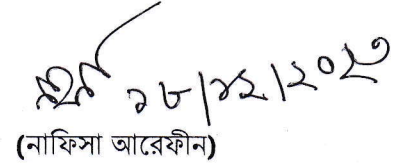 ১৮/১২/২০২৩
(নাফিসা আরেফীন)